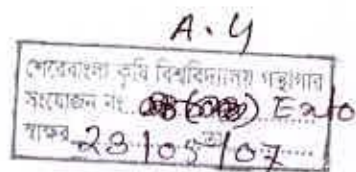 A. Y
শেরেবাংলা কৃষি বিশ্ববিদ্যালয় গন্থাগার
সংযোজন নং
স্বাক্ষর 23/05/07